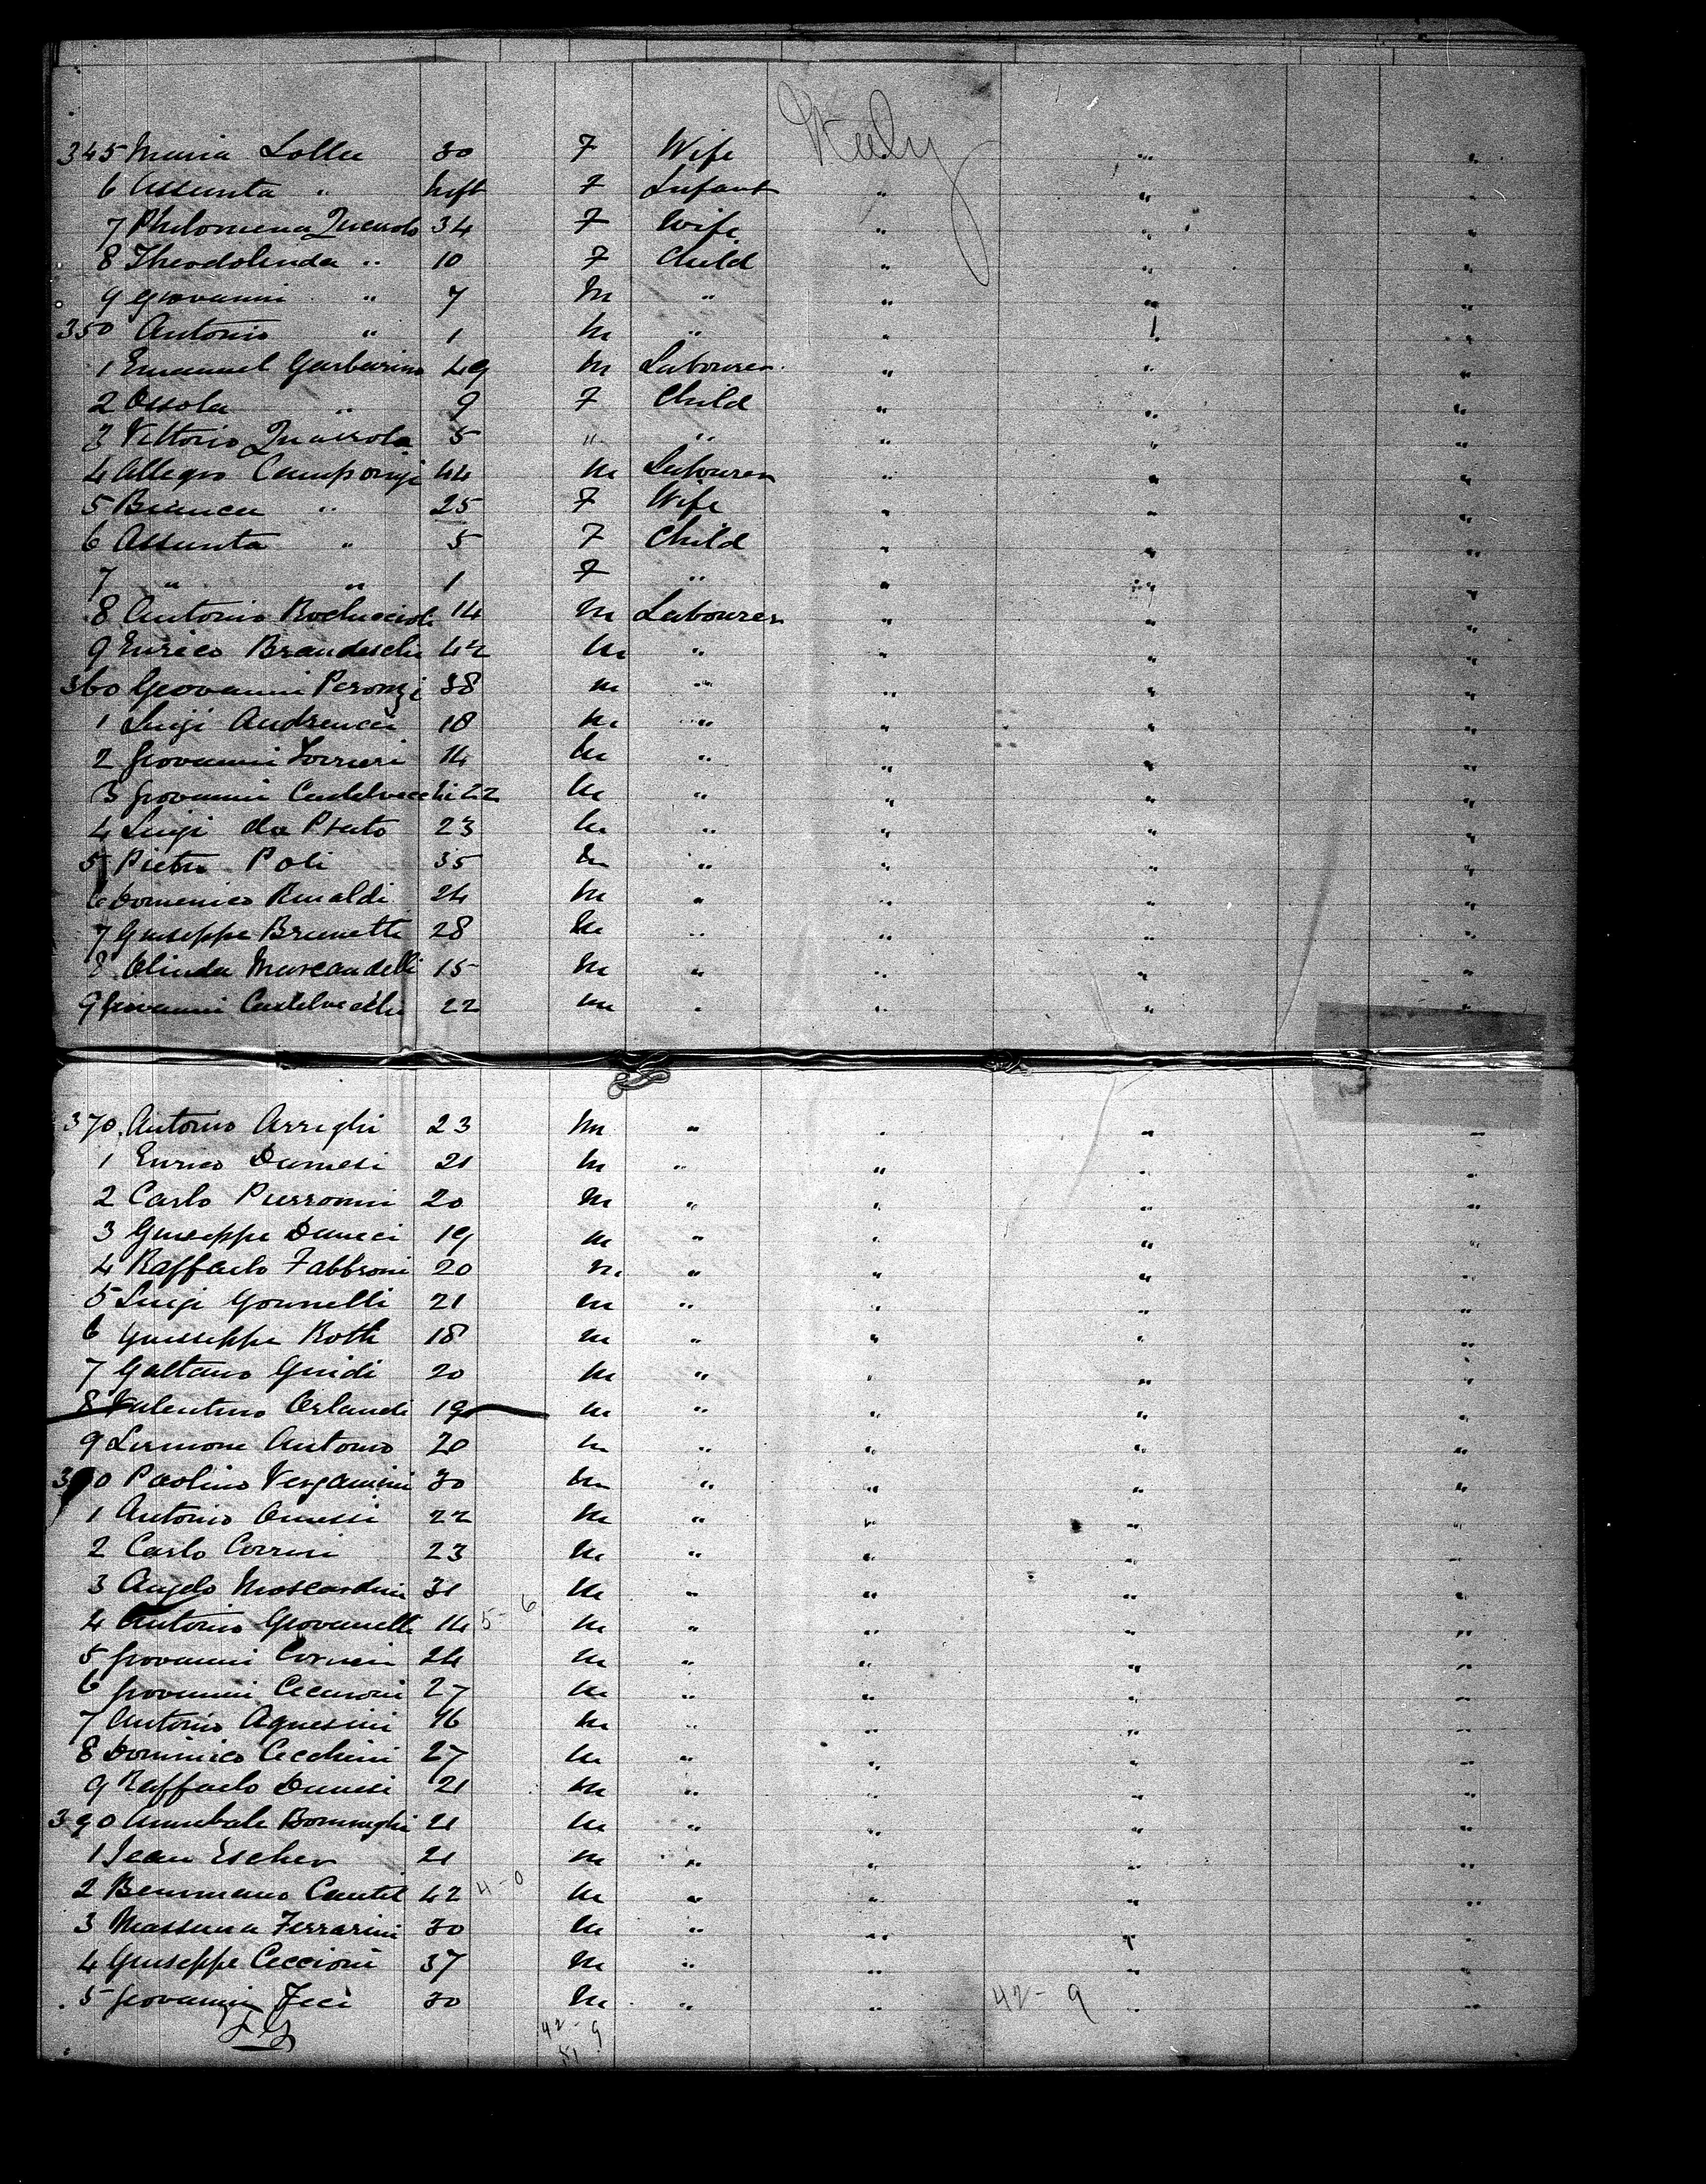 Italy
345 Maria Lolla 30 F Wife " "
6 Assunta " Inft F Infant " " "
7 Philomena Quairolo 34 F Wife " " "
8 Theodolinda " 10 F Child " " "
9 Giovanni " 7 M " " " "
350 Antonio " 1 M " " " "
1 Emanuel Garbarino 49 M Labourer " " "
2 Ossola " 9 F Child " " "
3 Vittorio 5 " " " " "
4 Allegro Camporigi 44 M Labourer " " "
5 Bianca " 25 F Wife " " "
6 Assunta " 5 F Child " " "
7 " " 1 F " " " "
8 Antonio 14 M Labourer " " "
9 Enrico Brandeschi 42 M " " " "
360 Giovanni Peronzi 38 M " " " "
1 Luigi Andreucci 18 M " " " "
2 Giovanni 14 M " " " "
3 Giovanni Castelvecchi 22 M " " " "
4 Luigi da Prato 23 M " " " "
5 Pietro Poli 35 M " " " "
6 Domenico Rinaldi 24 M " " " "
7 Giuseppe Brunetti 28 M " " " "
8 Olinda 15 M " " " "
9 Giovanni Castelvecchi 22 M " " " "
370 Antonio Arrighi 23 M " " " "
1 Enrico Danesi 21 M " " " "
2 Carlo Pierronni 20 M " " " "
3 Giuseppe 19 M " " " "
4 Raffaelo Fabbroni 20 M " " " "
5 Luigi Gonnelli 21 M " " " "
6 Guiseppe Roth 18 M " " " "
7 Gaetano Guidi 20 M " " " "
8 Valentino Orlandi 19 M " " " "
9 Antonio 20 M " " " "
380 Paolino Vergamini 30 M " " " "
1 Antonio 22 M " " " "
2 Carlo Corrini 23 M " " " "
3 Angelo Moscardini 31 M " " " "
4 Antonio Giovanelli 14 5-6 M " " " "
5 Giovanni 24 M " " " "
6 Giovanni Ceccaroni 27 M " " " "
7 Antonio Agnesini 16 M " " " "
8 Dominico Cecchini 27 M " " " "
9 Raffaelo Danesi 21 M " " " "
390 Annibale 21 M " " " "
1 Jean Escher 21 M " " " "
2 42 4-0 M " " " "
3 Massima Ferrarini 30 M " " " "
4 Giuseppe Ceccioni 37 M " " " "
5 Giovanni Feci 30 M " " 42-9 " "
42-9
51